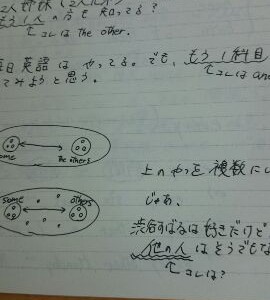 2人姉妹(2人兄弟)
もう1人の方も知ってる?
コレは the other.
毎日英語はやってる。でも、もう1科目
てみようと思う。
コレは an
some
the others
上のやつを複数にし
some
others
じゃあ、
渋谷すばるは好きだけど
他の人はそうでもな
コレは?